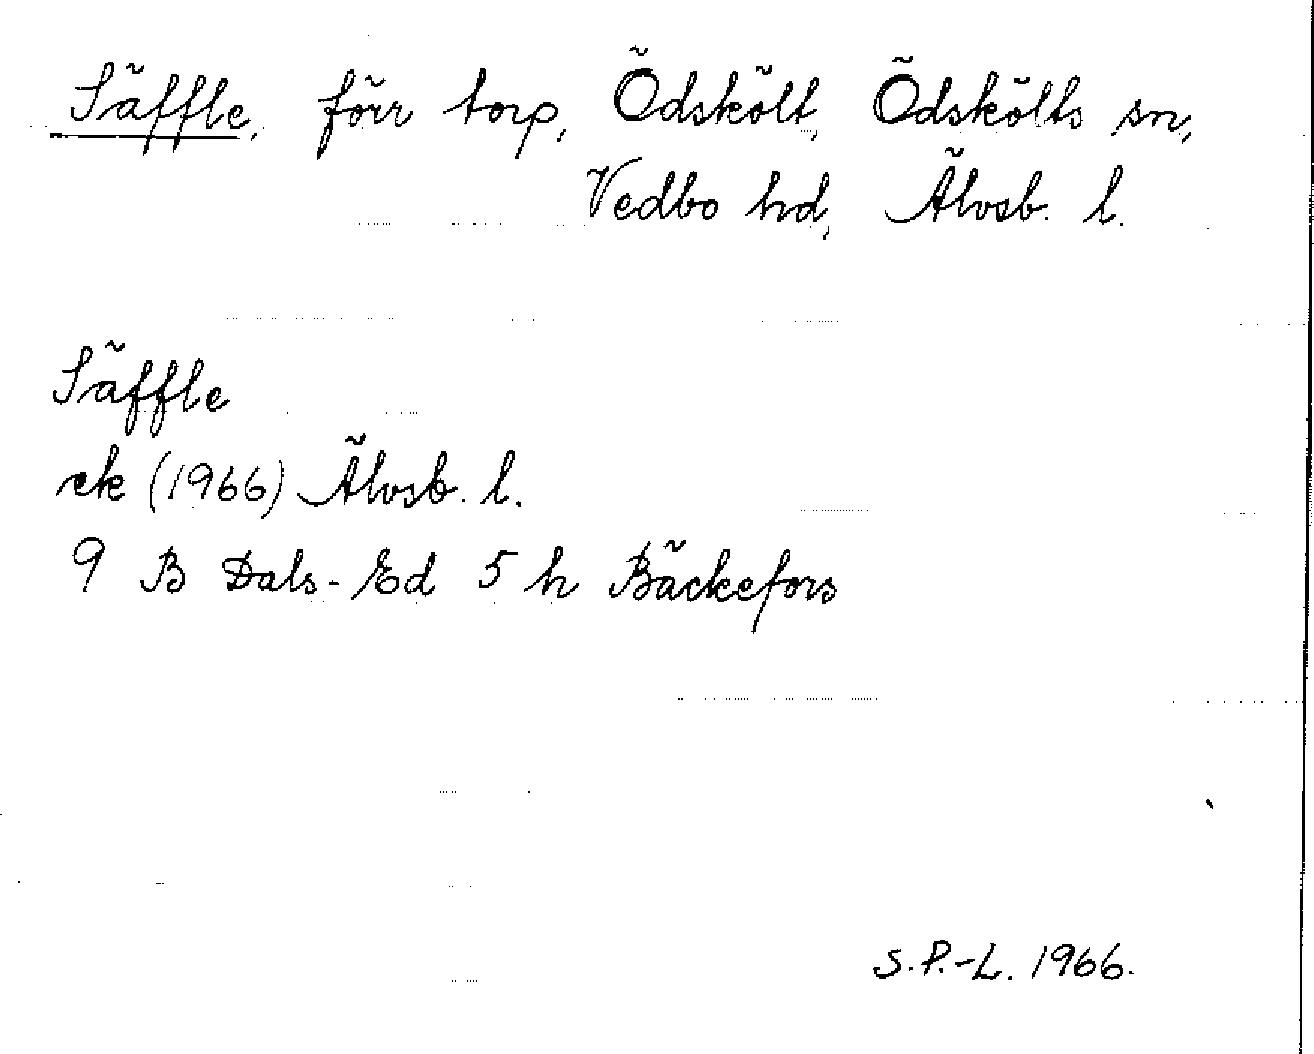 Säffle, förr torp, Ödskölt, Ödskölts sn,
Vedbo hd, Älvsb. l.
Säffle
ek (1966) Älvsb. l.
9 B Dals-Ed 5 h Bäckefors
S.P.-L. 1966.